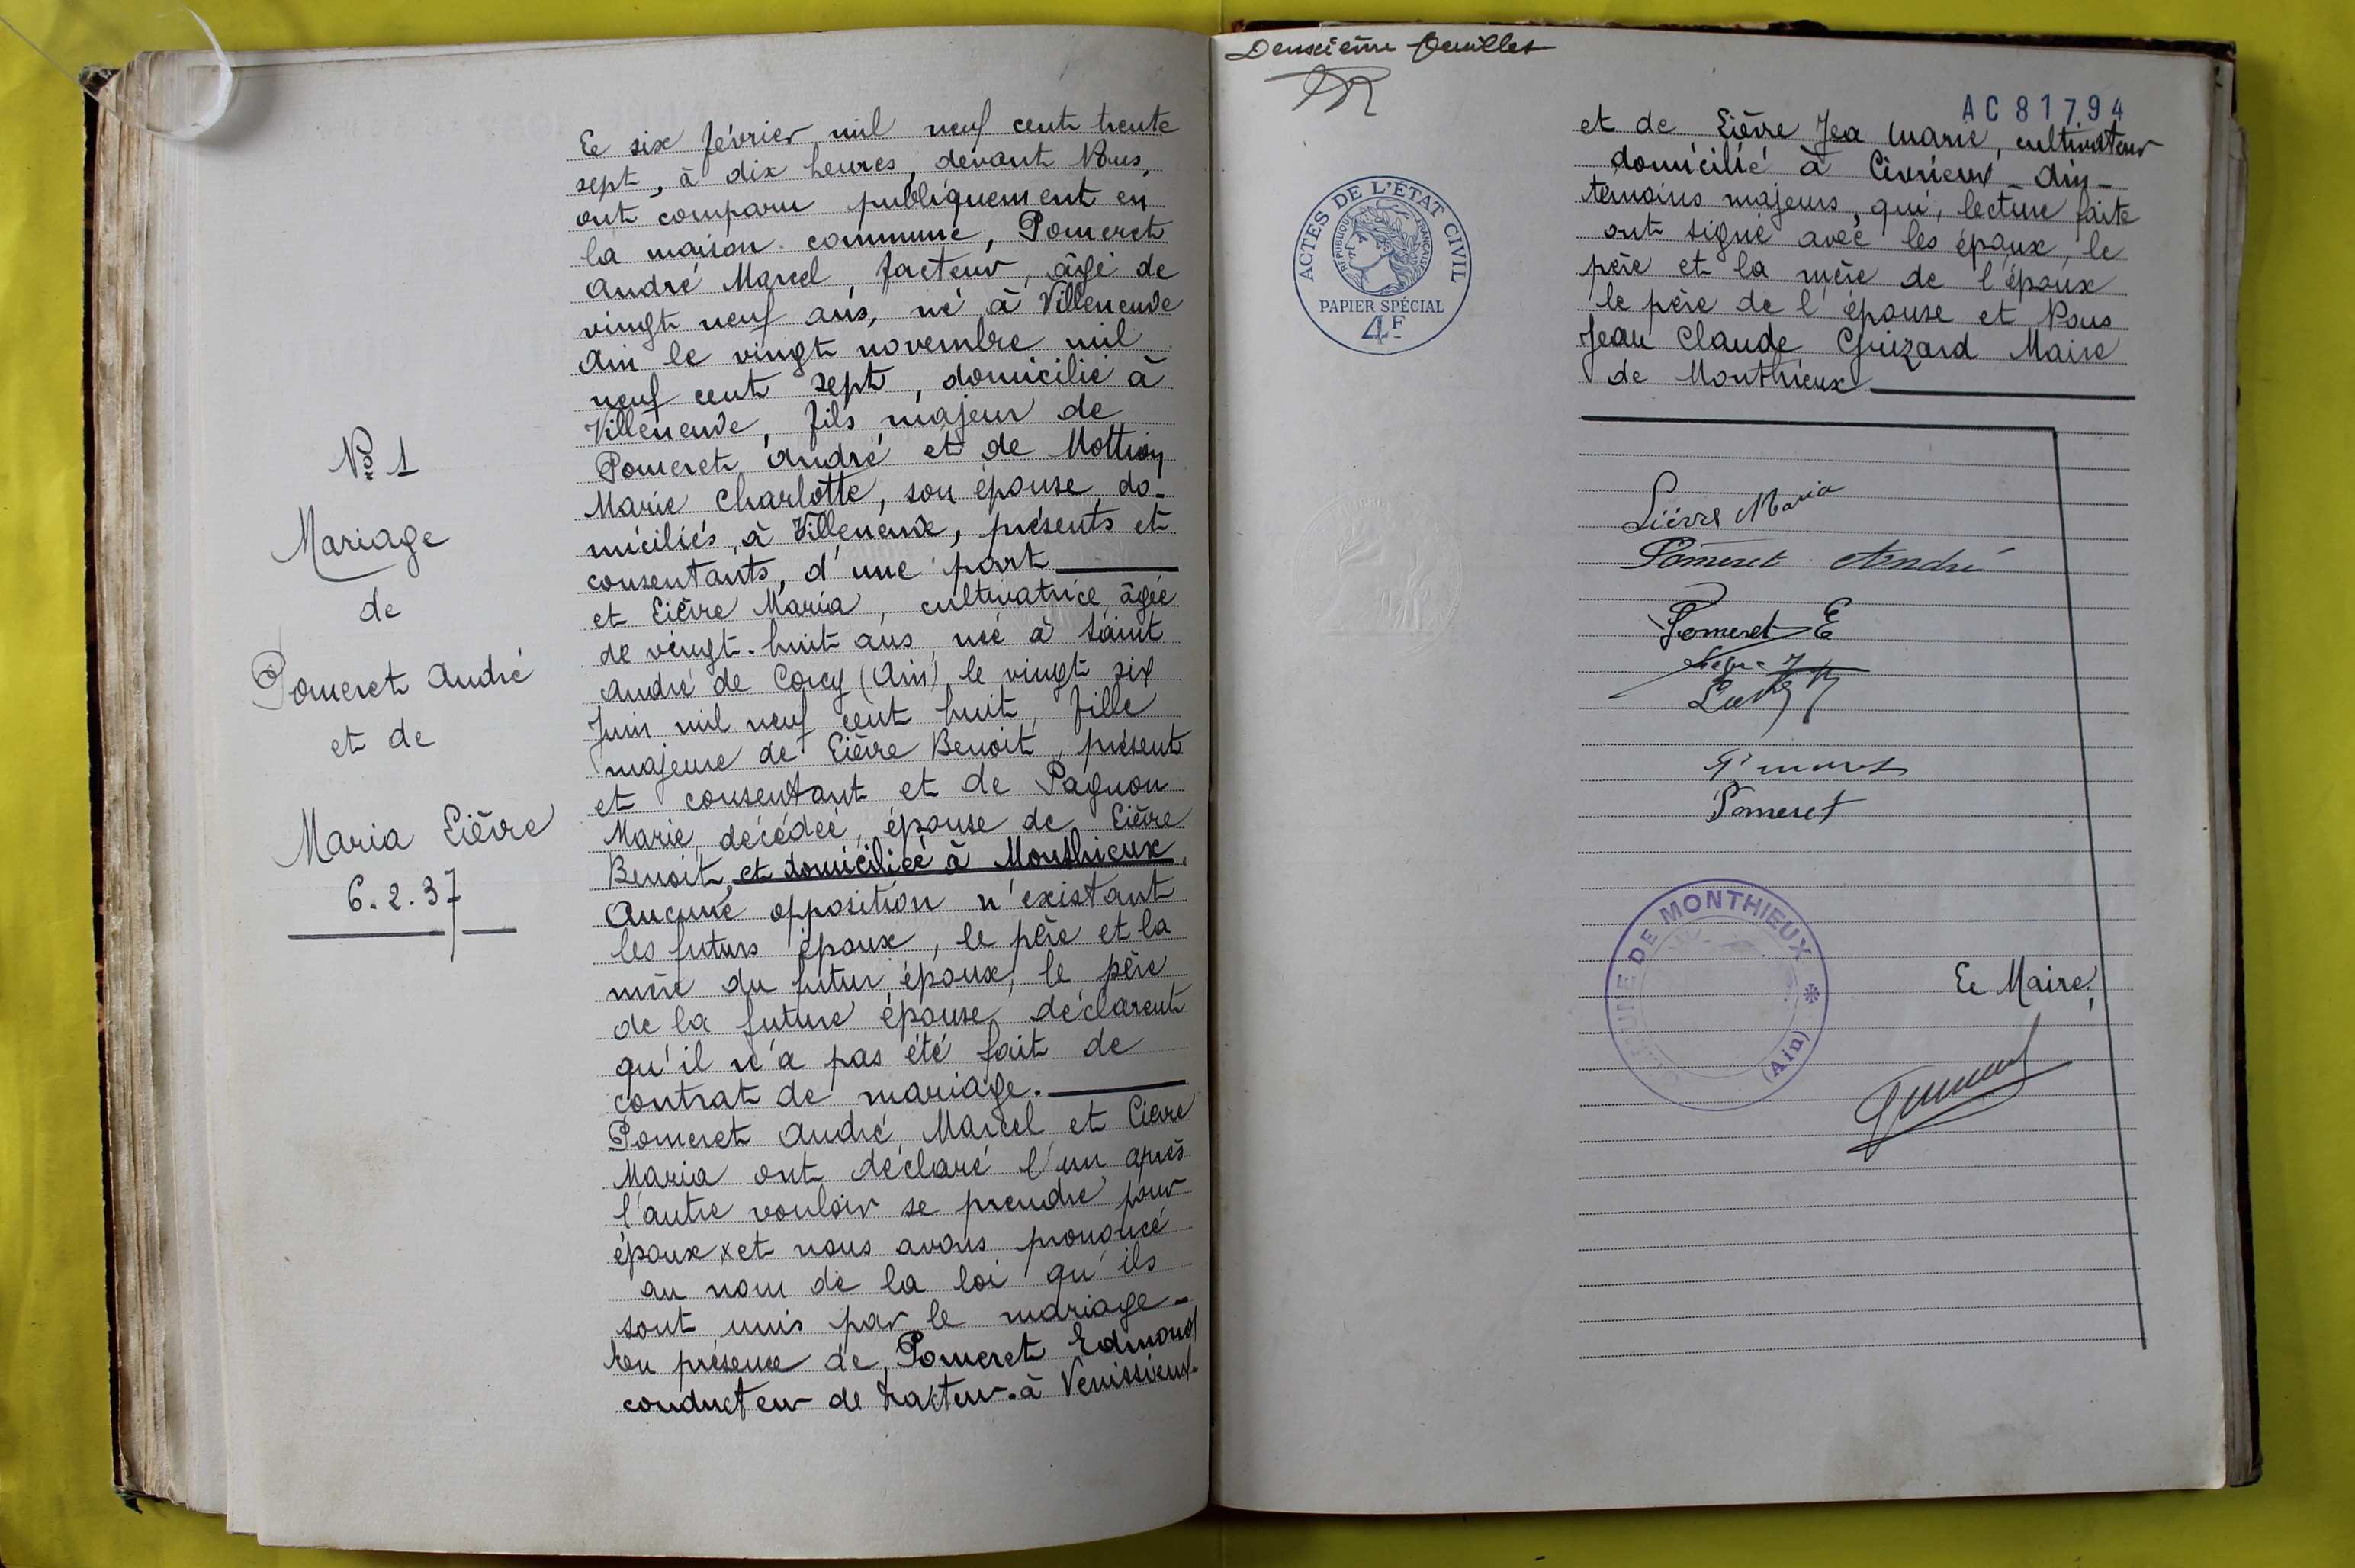 N° 1
Mariage
de
Pomeret André
et de
Maria Lièvre
6.2.37
Le six février mil neuf cent trente
sept, à dix heures, devant Nous,
ont comparu publiquement en
la maison commune, Pomeret
André Marcel, facteur, âgé de
vingt neuf ans, né à Villeneuve
Ain le vingt novembre mil
neuf cent sept, domicilié à
Villeneuve, fils majeur de
Pomeret André et de Mottion
Marie Charlotte, son épouse, do-
miciliés à Villeneuve, présents et
consentants, d'une part
et Lièvre Maria, cultivatrice âgée
de vingt-huit ans née à Saint
André de Corcy (Ain) le vingt six
Juin mil neuf cent huit, fille
majeure de Lièvre Benoit, présent
et consentant et de Pagnon
Marie décédée, épouse de Lièvre
Benoit, et domiciliée à Monthieux.
Aucune opposition n'existant
les futurs époux, le père et la
mère du futur époux, le père
de la future épouse, déclarent
qu'il n'a pas été fait de
contrat de mariage.
Pomeret André Marcel et Lièvre
Maria ont déclaré l'un après
l'autre vouloir se prendre pour
époux x et nous avons prononcé
au nom de la loi qu'ils
sont unis par le mariage -
en présence de Pomeret Edmond
conducteur de tracteur à Venissieux
Deuxième feuillet
AC 81794
ACTES DE L'ÉTAT CIVIL
RÉPUBLIQUE FRANÇAISE
PAPIER SPÉCIAL
4F
et de Lièvre Jea Marie, cultivateur
domicilié à Civrieux - Ain -
témoins majeurs, qui, lecture faite
ont signé avec les époux, le
père et la mère de l'époux
le père de l'épouse et Nous
Jean Claude Guizard Maire
de Monthieux
Lièvre Maria
Pomeret André
Pomeret E
Pomeret
MONTHIEUX
(Ain)
Le Maire,